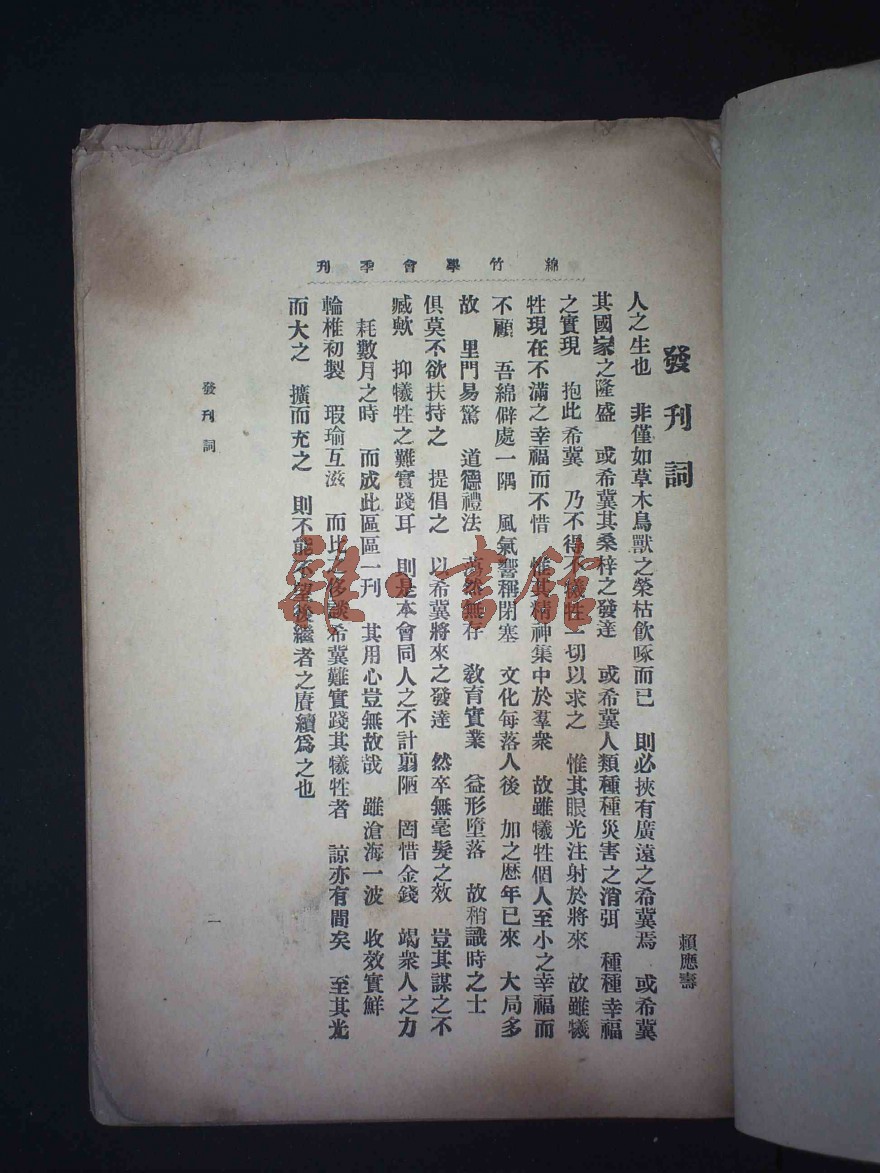 綿竹學會季刊
發刊詞
賴應壽
人之生也　非僅如草木鳥獸之榮枯飮啄而已　則必挾有廣遠之希冀焉　或希冀
其國家之隆盛　或希冀其桑梓之發達　或希冀人類種種災害之消弭　種種幸福
之實現　抱此希冀　乃不得不犧牲一切以求之　惟其眼光注射於將來　故雖犧
牲現在不滿之幸福而不惜　惟其精神集中於羣衆　故雖犧牲個人至小之幸福而
不顧　吾綿僻處一隅　風氣響稱閉塞　文化每落人後　加之歷年已來　大局多
故　里門易驚　道德禮法　蕩然無存　敎育實業　益形墮落　故稍識時之士
俱莫不欲扶持之　提倡之　以希冀將來之發達　然卒無毫髮之效　豈其謀之不
臧歟　抑犧牲之難實踐耳　則是本會同人之不計翦陋　罔惜金錢　竭衆人之力
耗數月之時　而成此區區一刊　其用心豈無故哉　雖滄海一波　收效實鮮
輪椎初製　瑕瑜互滋　而比之侈談希冀難實踐其犧牲者　諒亦有間矣　至其光
而大之　擴而充之　則不能不望後繼者之賡續爲之也
發刊詞
一
雜·書館